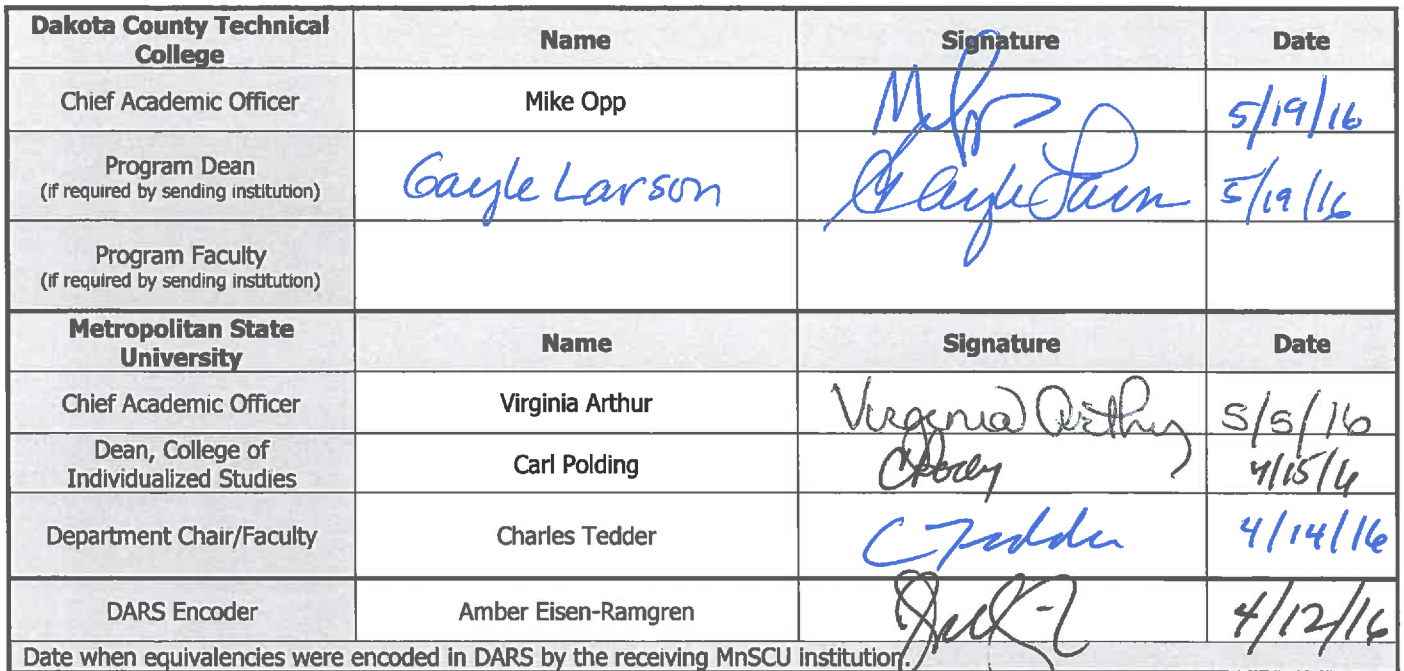 Dakota County Technical College Name Signature Date
Chief Academic Officer Mike Opp 5/19/16
Program Dean
(if required by sending institution) Gayle Larson Gayle Larson 5/19/16
Program Faculty
(if required by sending institution)
Metropolitan State University Name Signature Date
Chief Academic Officer Virginia Arthur Virginia Arthur 5/5/16
Dean, College of Individualized Studies Carl Polding 4/15/16
Department Chair/Faculty Charles Tedder C Tedder 4/14/16
DARS Encoder Amber Eisen-Ramgren 4/12/16
Date when equivalencies were encoded in DARS by the receiving MnSCU institution.